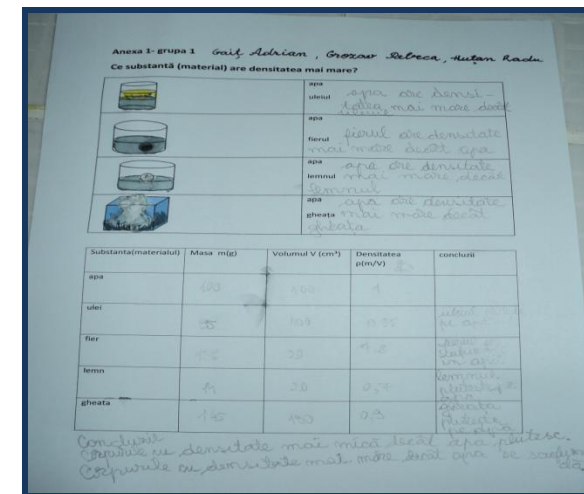 Anexa 1- grupa 1 Gaiț Adrian, Grozav Rebeca, Huțan Radu
Ce substantă (material) are densitatea mai mare?
apa
uleiul apa are densi-
tatea mai mare decât
uleiul
apa
fierul fierul are densitate
mai mare decât apa
apa apa are densitate
lemnul mai mare decât
lemnul
apa apa are densitate
gheața mai mare decât
gheața
Substanta(materialul) Masa m(g) Volumul V (cm³) Densitatea concluzii
ρ(m/V)
apa
100 100 1
ulei
95 100 0,95
pe apă
fier
20 7,8
lemn
20 lemnul
plutește pe
apa
gheata
0,9 gheața
plutește
pe apă
Concluzii
Corpurile cu densitate mai mică decât apa plutesc.
Corpurile cu densitate mai mare decât apa se scufun
dă